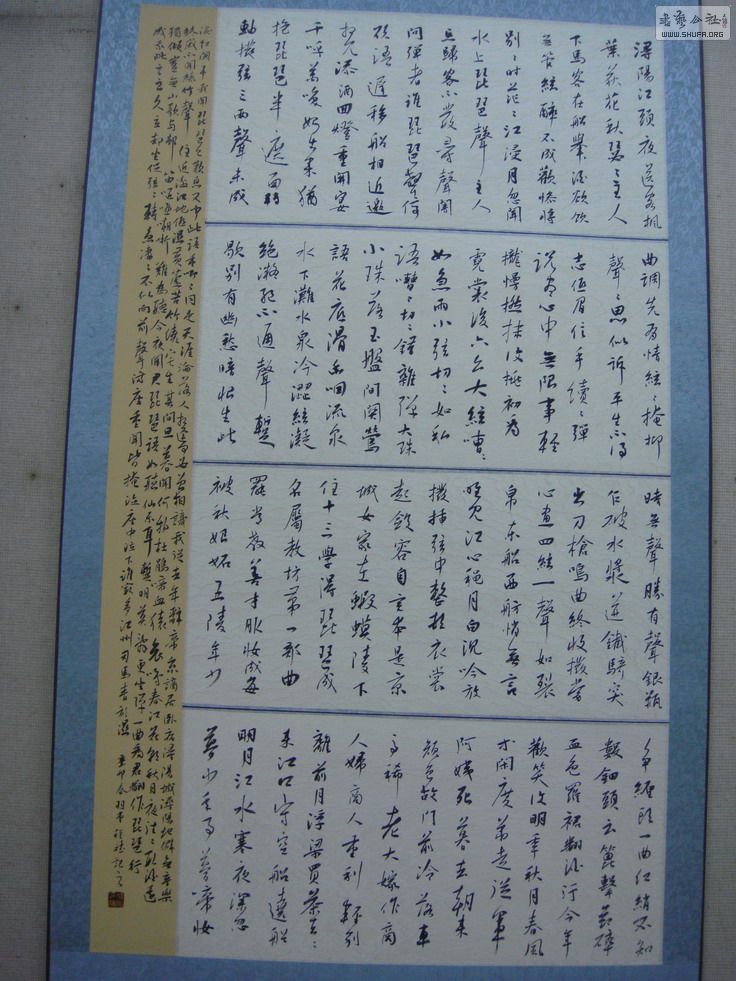 潯陽江頭夜送客楓
葉荻花秋瑟々主人
下馬客在船舉酒欲飲
無管絃醉不成歡慘將
別々時茫々江浸月忽聞
水上琵琶聲主人
忘歸客不發尋聲闇
問彈者誰琵琶聲停
欲語遲移船相近邀
相見添酒回燈重開宴
千呼萬喚始出來猶
抱琵琶半遮面轉
軸撥弦三兩聲未成
曲調先有情絃々掩抑
聲々思似訴平生不得
志低眉信手續々彈
說盡心中無限事輕
攏慢撚抹復挑初為
霓裳後六么大絃嘈々
如急雨小弦切々如私
語嘈々切々錯雜彈大珠
小珠落玉盤間關鶯
語花底滑幽咽流泉
水下灘水泉冷澀絃凝
絕凝絕不通聲暫
歇別有幽愁暗恨生此
時無聲勝有聲銀瓶
乍破水漿迸鐵騎突
出刀槍鳴曲終收撥當
心畫四絃一聲如裂
帛東船西舫悄無言
唯見江心秋月白沉吟放
撥插弦中整頓衣裳
起斂容自言本是京
城女家在蝦蟆陵下
住十三學得琵琶成
名屬教坊第一部曲
罷常教善才服妝成每
被秋娘妒五陵年少
爭纏頭一曲紅綃不知
數鈿頭雲篦擊節碎
血色羅裙翻酒污今年
歡笑復明年秋月春風
等閑度弟走從軍
阿姨死暮去朝來
顏色故門前冷落車
馬稀老大嫁作商
人婦商人重利輕別
離前月浮梁買茶去々
來江口守空船繞船
明月江水寒夜深忽
夢少年事夢啼妝
淚紅闌干我聞琵琶已歎息又聞此語重唧々同是天涯淪落人相逢何必曾相識我從去年辭帝京謫居臥病潯陽城潯陽地僻無音樂
終歲不聞絲竹聲住近湓江地低濕黃蘆苦竹繞宅生其間旦暮聞何物杜鵑啼血猿哀鳴春江花朝秋月夜往々取酒還
獨傾豈無山歌與村笛嘔啞嘲哳難為聽今夜聞君琵琶語如聽仙樂耳暫明莫辭更坐彈一曲為君翻作琵琶行
感我此言良久立卻坐促弦々轉急淒々不似向前聲滿座重聞皆掩泣座中泣下誰最多江州司馬青衫濕 辛卯春
書藝公社
WWW.SHUFA.ORG